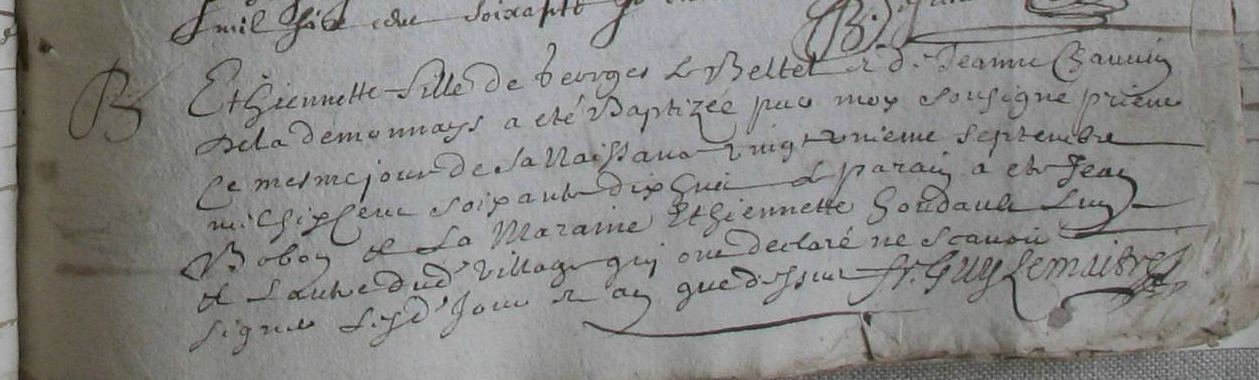 mil six cens soixante
B. Ethiennette fille de Georges Le Beltel & de Jeanne Bauuin
de la demonnays a eté Baptizée par moy sousigné prieur
ce mesme jour de sa Naissance vingt vnieme septembre
mil six cent soixante dix huit le parain a eté Jean
Bobon et La Maraine Ethiennette Houdault L'un
et L'autre dud' village qui ont declaré ne scauoir
signer Lesd' Jour & an que dessus fr. Guy Lemaistre